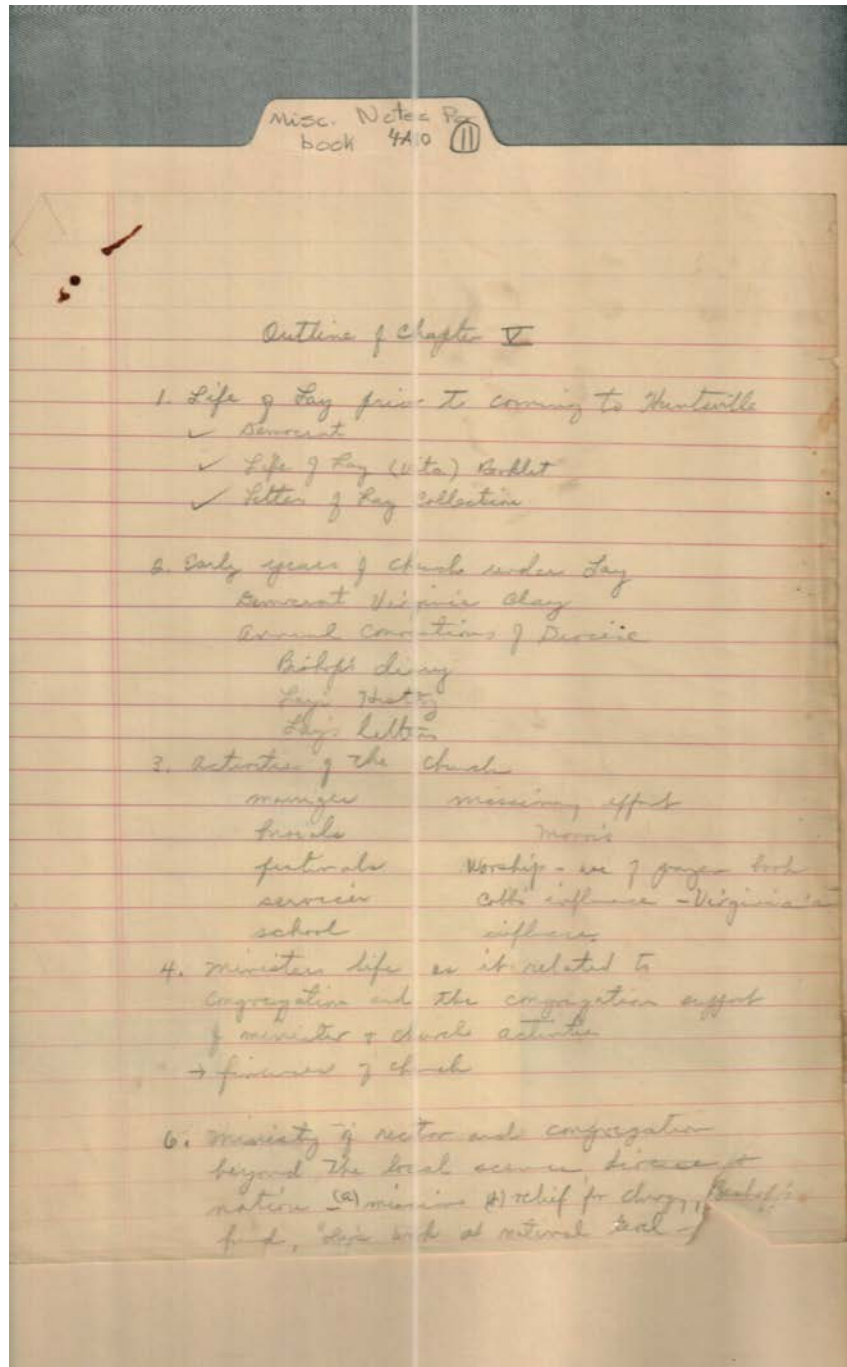 Misc. Notes For
book 4A0 11
Outline of Chapter V
1. Life of Lay prior to coming to Huntsville
✓ Democrat
✓ Life of Lay (Vita) Booklet
✓ Letters of Lay Collection
2. Early years of church under Lay
Democrat Virginia Clay
Annual Conventions of Diocese
Bishop's diary
Lay's History
Lay's letters
3. Activities of the church
marriages missionary effort
burials Morris
festivals Worship - use of prayer book
services Cobb's influence - Virginia's
school influence
4. Ministers life as it related to
congregation and the congregation support
of minister + church activities
→ finances of church
6. Ministry of rector and congregation
beyond the local scene diocese +
nation (a) missions (b) relief for clergy, Bishop's
fund, Lay's work at national level